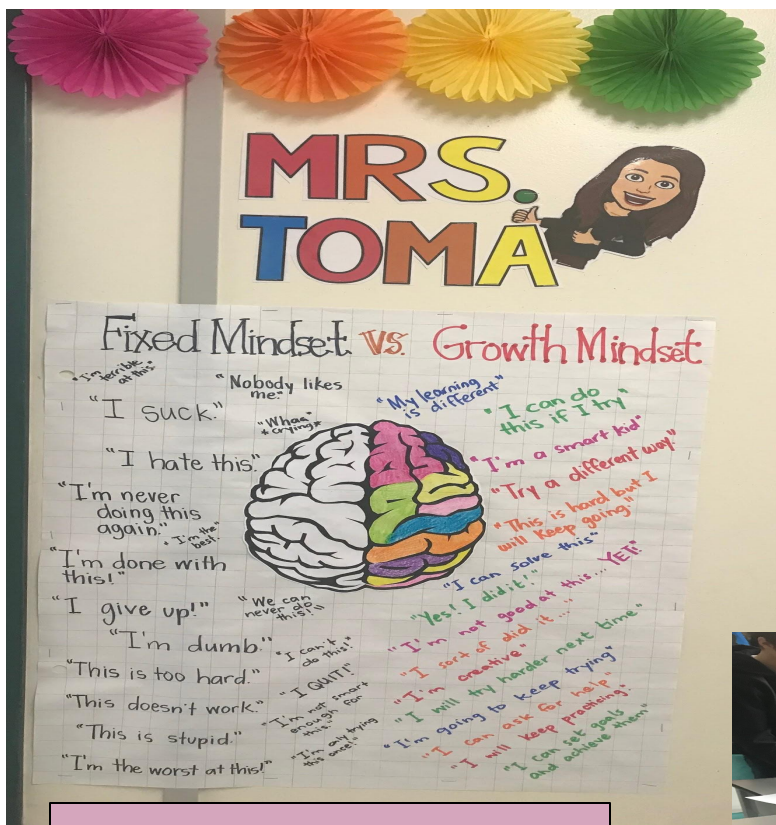 MRS.
TOMA
Fixed Mindset VS. Growth Mindset
"I'm terrible
at this."
"Nobody likes
me."
"I suck."
"Whaa"
*crying*
"I hate this."
"I'm never
doing this
again."
"I'm the
best."
"I'm done with
this!"
"I give up!"
"We can
never do
this!"
"I'm dumb."
"I can't
do this!"
"This is too hard."
"I QUIT!"
"This doesn't work."
"I'm not smart
enough for
this."
"This is stupid."
"I'm only trying
this once!"
"I'm the worst at this!"
"My learning
is different"
"I can do
this if I try"
"I'm a smart kid"
"Try a different way."
"This is hard but I
will keep going."
"I can solve this"
"Yes! I did it!"
"I'm not good at this... YET!"
"I sort of did it..."
"I'm creative"
"I will try harder next time"
"I'm going to keep trying"
"I can ask for help"
"I will keep practising."
"I can set goals
and achieve them"